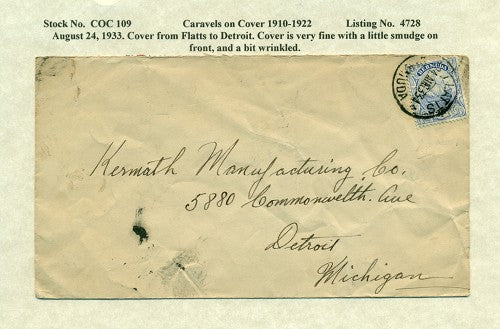 Stock No. COC 109 Caravels on Cover 1910-1922 Listing No. 4728
August 24, 1933. Cover from Flatts to Detroit. Cover is very fine with a little smudge on
front, and a bit wrinkled.
BERMUDA
Kermath Manufacturing Co.
5880 Commonwelth. Ave
Detroit
Michigan